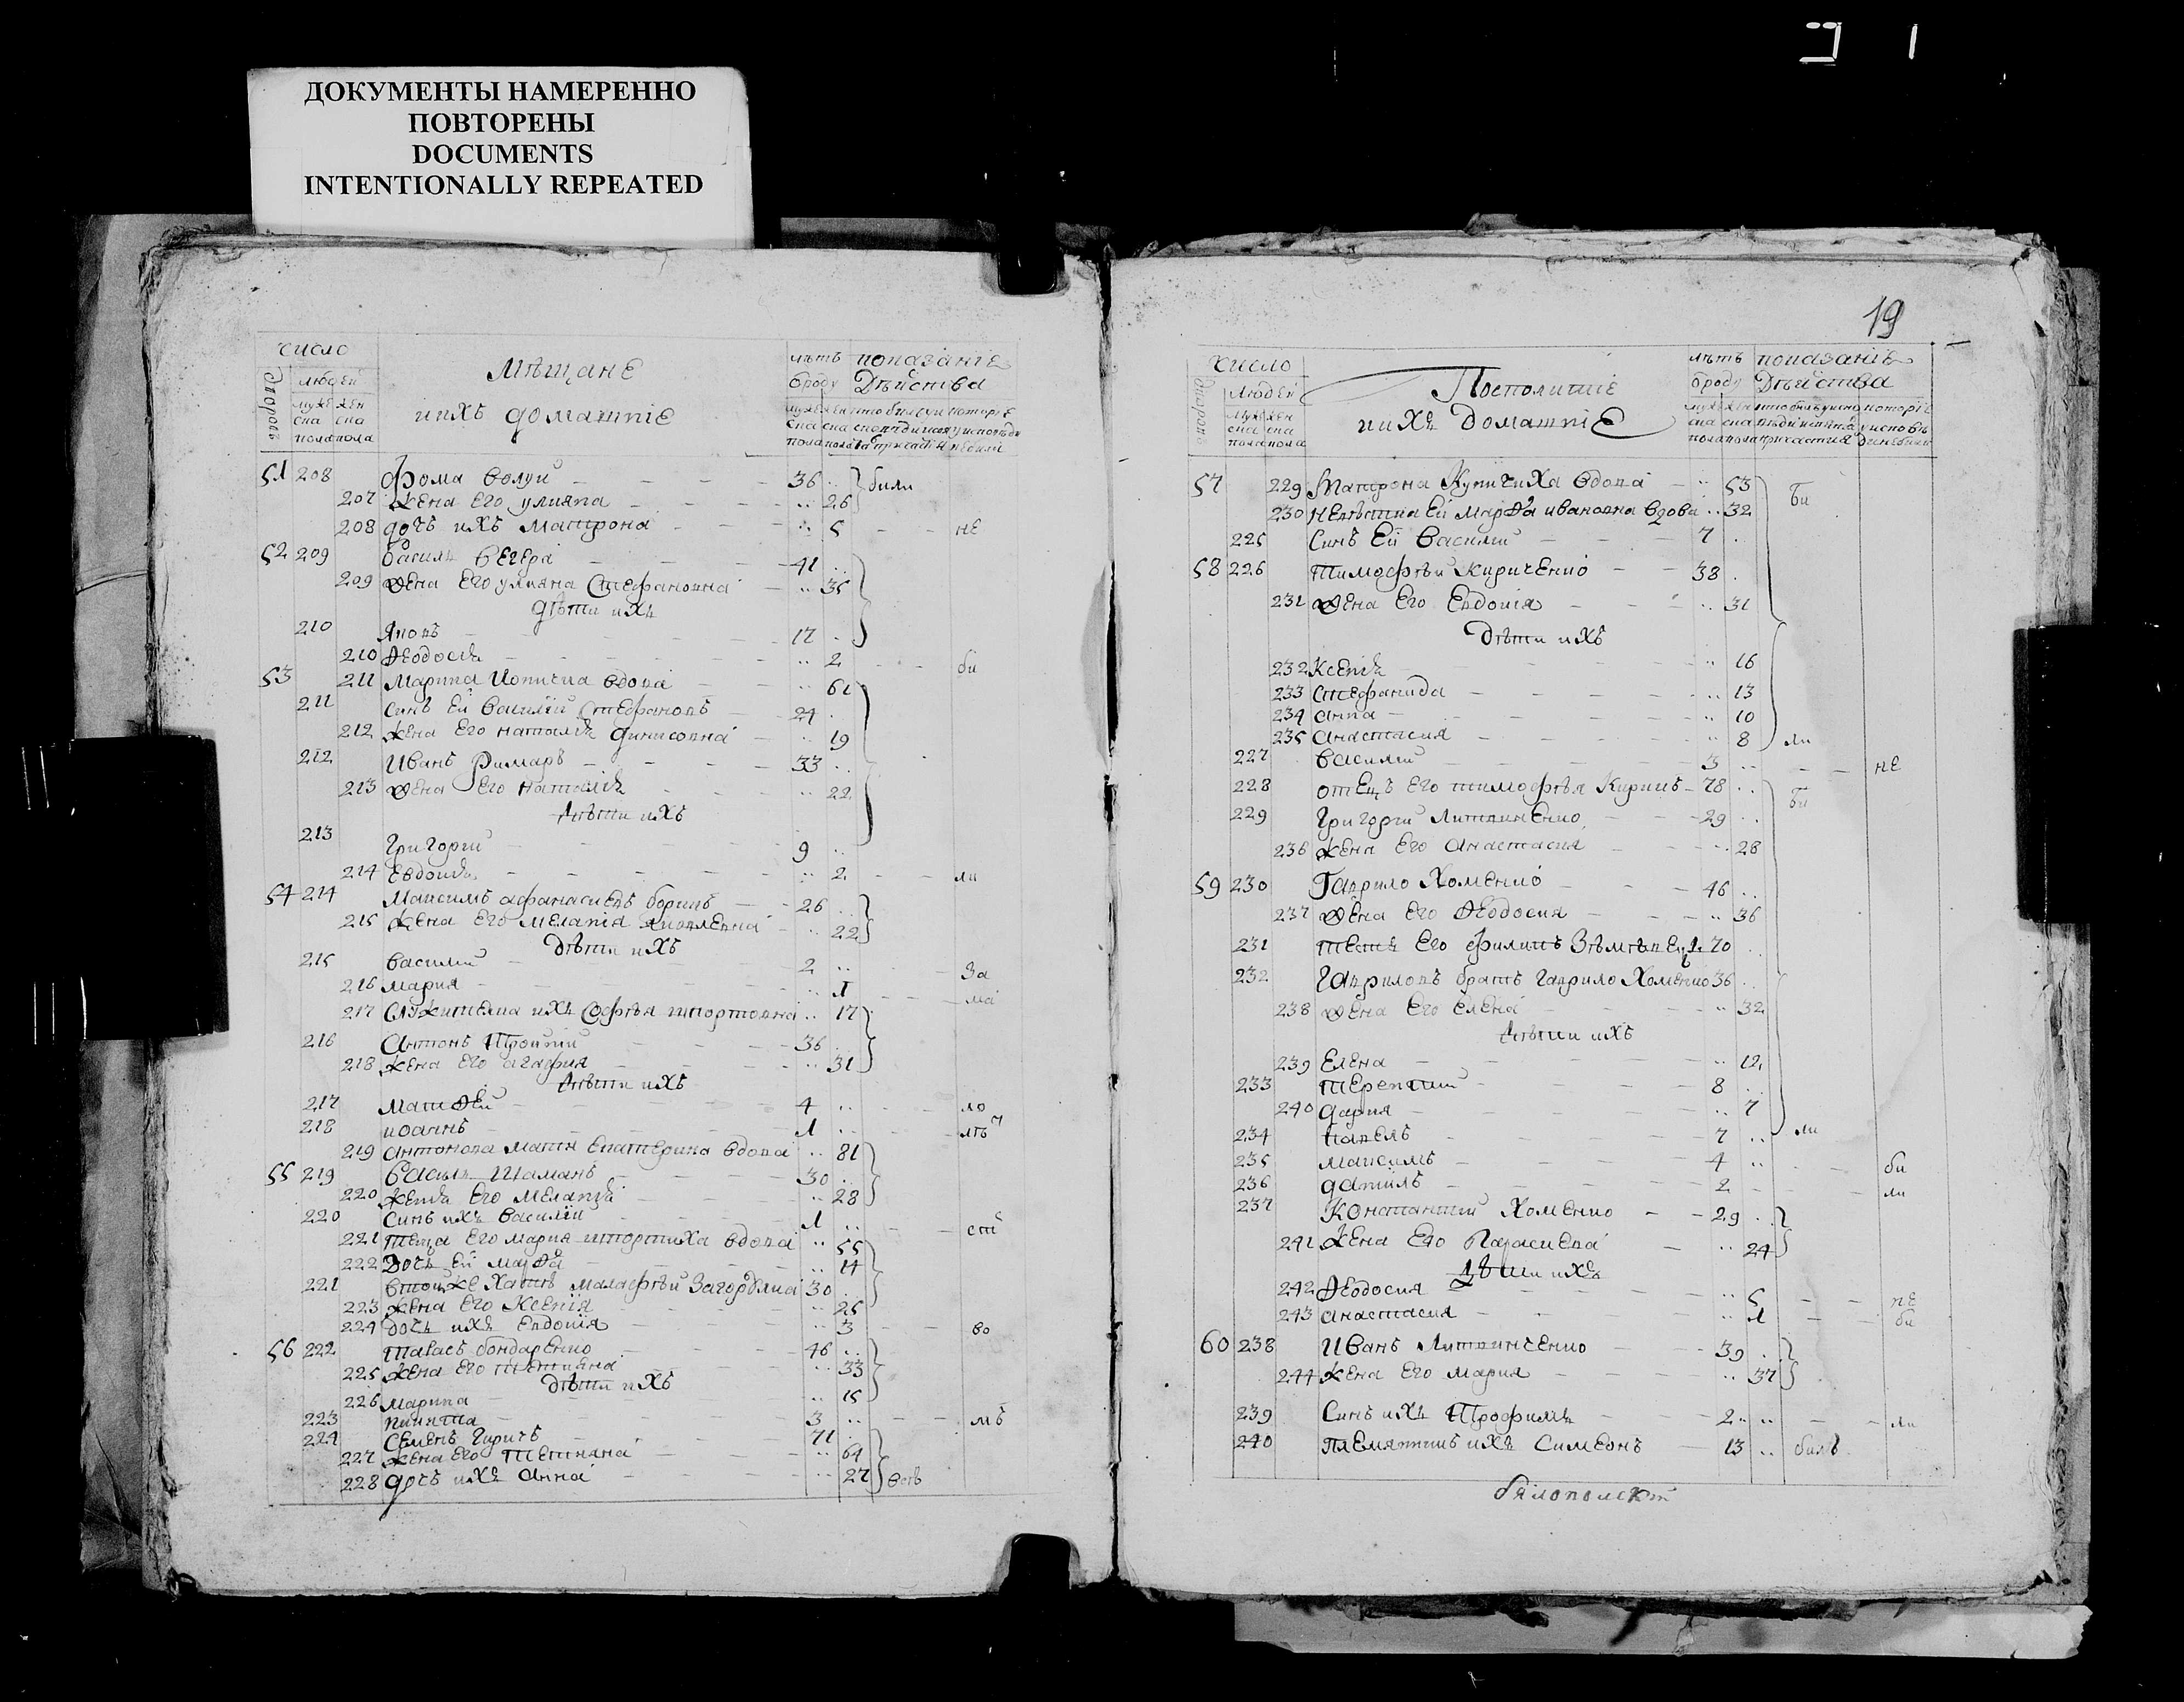 ДОКУМЕНТЫ НАМЕРЕННО
ПОВТОРЕНЫ
DOCUMENTS
INTENTIONALLY REPEATED
число
дворовъ
людей
мѣщане
ихъ домашнiе
лѣтъ показанiе
ѿроду Дѣйства
51 208 Фома Волуй 36 били
207 жена его улияна 26
208 дочъ ихъ Матрона 5 не
52 209 Василь Вегера 41
209 жена его улияна Стефановна 35
дѣти ихъ
210 Яковъ 17
210 Ѳеодосiя 2 би
53 211 Марина вдова 61
211 Синъ Ей Василiй Стефановъ 24
212 жена его наталiя Динисовна 19
212 Иванъ Римаръ 33
213 жена его наталiя 22
дѣти ихъ
213 Григорий 9
214 Евдокiя 2 ли
54 214 Максимъ афанасиевъ 26
215 жена его мелания Яковлевна 22
дѣти ихъ
215 Василий 2 за
216 мария 1 ма
217 служителка ихъ Софѣя 17
216 Антонъ Троцкiй 36
218 жена его агафия 31
дѣти ихъ
217 матѳей 4 ло
218 иоаннъ 1 лѣт
219 антонова мати Екатерина вдова 81
55 219 Василь Шаманъ 30
220 жена его меланiя 28
220 Синъ ихъ Василiй 1 ст
221 теща его мария вдова 55
222 Дочъ Ей марѳа 14
221 втой же хатѣ малафѣй Загородниа 30
223 жена его Ксения 25
224 дочь ихъ Евдокiя 3 во
56 222 тарасъ бондаренко 46
225 жена его тетияна 33
дѣти ихъ
226 марина 15
223 никита 3 мъ
224 Семенъ Гиричъ 71
227 жена его Тетияна 64
228 дочъ ихъ Анна 27
19
число
дворовъ
людей
Посполитiе
ихъ Домашнiе
лѣтъ показанiе
ѿроду Дѣйства
57 229 Матрона Купчиха вдова 53 би
230 невѣстка Ей марѳа ивановна вдова 32
225 Синъ Ей Василий 7
58 226 Тимофѣй Кириченко 38
231 жена Его Евдокiя 31
Дѣти ихъ
232 Ксенiя 16
233 Стефанида 13
234 анна 10
235 анастасия 8 ли
227 василий 3 не
228 отецъ его тимофѣя Кирикъ 78 би
229 Григорий Литвиненко 29
236 жена Его Анастасия 28
59 230 Гаврило Хоменко 46
237 жена Его Ѳеодосия 36
231 тесть Его филипъ 70
232 Гавриловъ братъ Гаврило Хоменко 36
238 жена Его Елена 32
дѣти ихъ
239 Елена 12
233 терентий 8
240 дария 7
234 павелъ 7 ли
235 максимъ 4 би
236 данiилъ 2 ли
237 Константий Хоменко 29
241 жена Его Параскева 24
дѣти ихъ
242 Ѳеодосия 5 не
243 анастасия 1 би
60 238 Иванъ Литвинченко 39
244 жена Его Мария 37
239 Синъ ихъ Трофимъ 2 ли
240 племянникъ ихъ Симеонъ 13 билъ